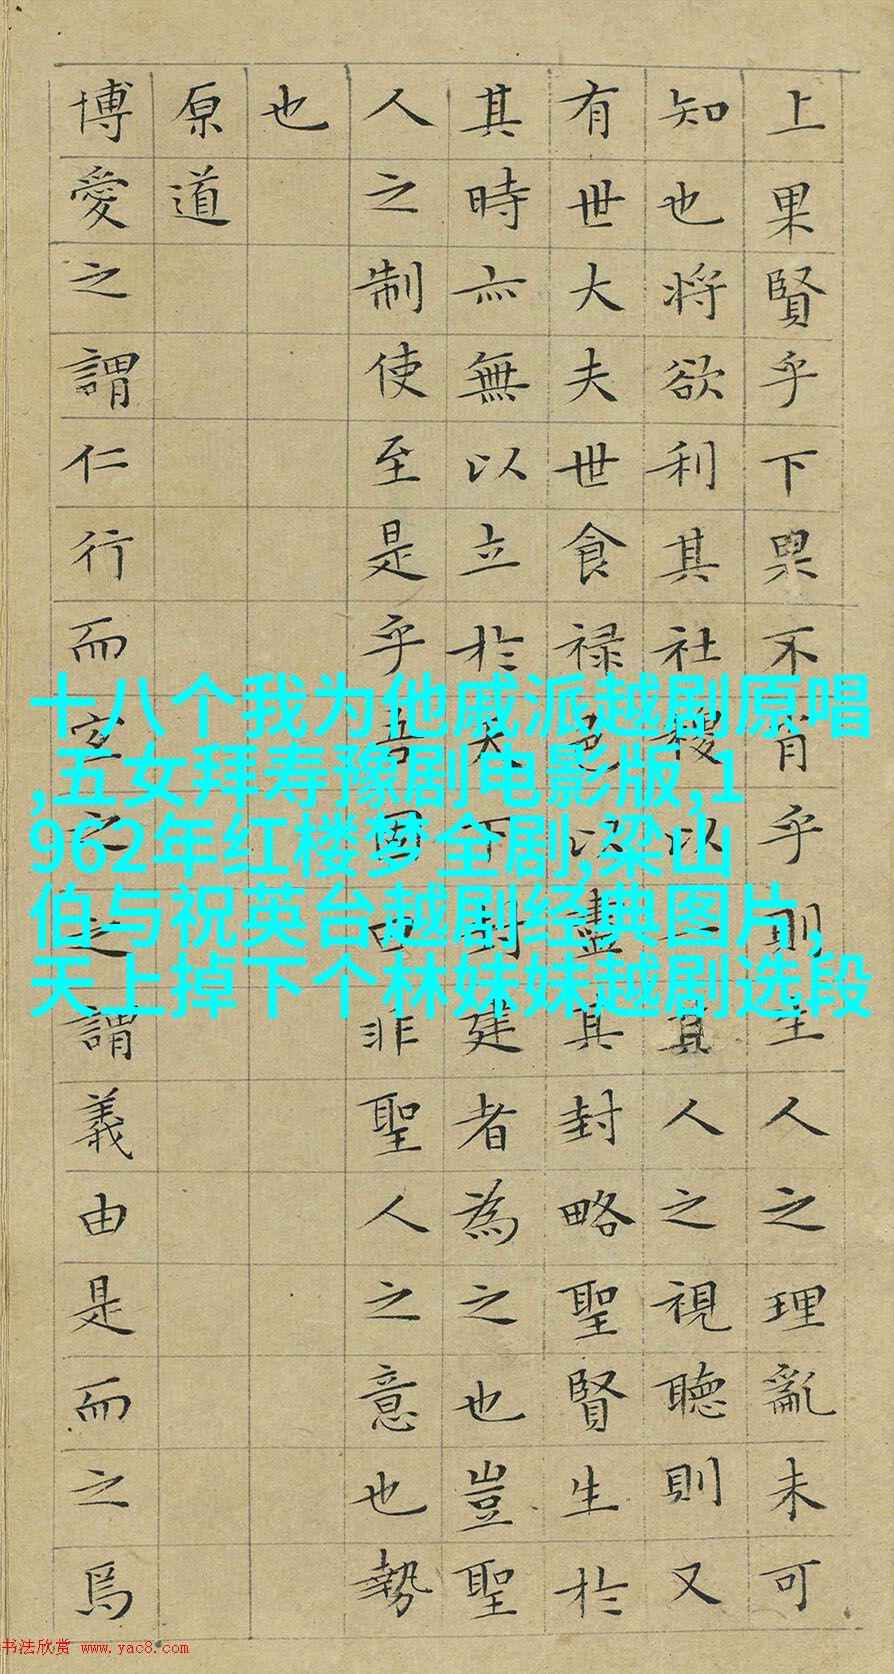 上果賢乎下果不肖乎則生人之理亂未可
知也將欲利其社稷以一其人之視聽則又
有世大夫世食禄邑以盡其封略聖賢生於
其時亦無以立於天下封建者為之也豈聖
人之制使至是乎吾固曰非聖人之意也勢
也
原道
博愛之謂仁行而宜之之謂義由是而之焉
十八个我为他戚派越剧原唱
,五女拜寿豫剧电影版,1
962年红楼梦全剧,梁山
伯与祝英台越剧经典图片,
天上掉下个林妹妹越剧选段
书法欣赏 www.yac8.com